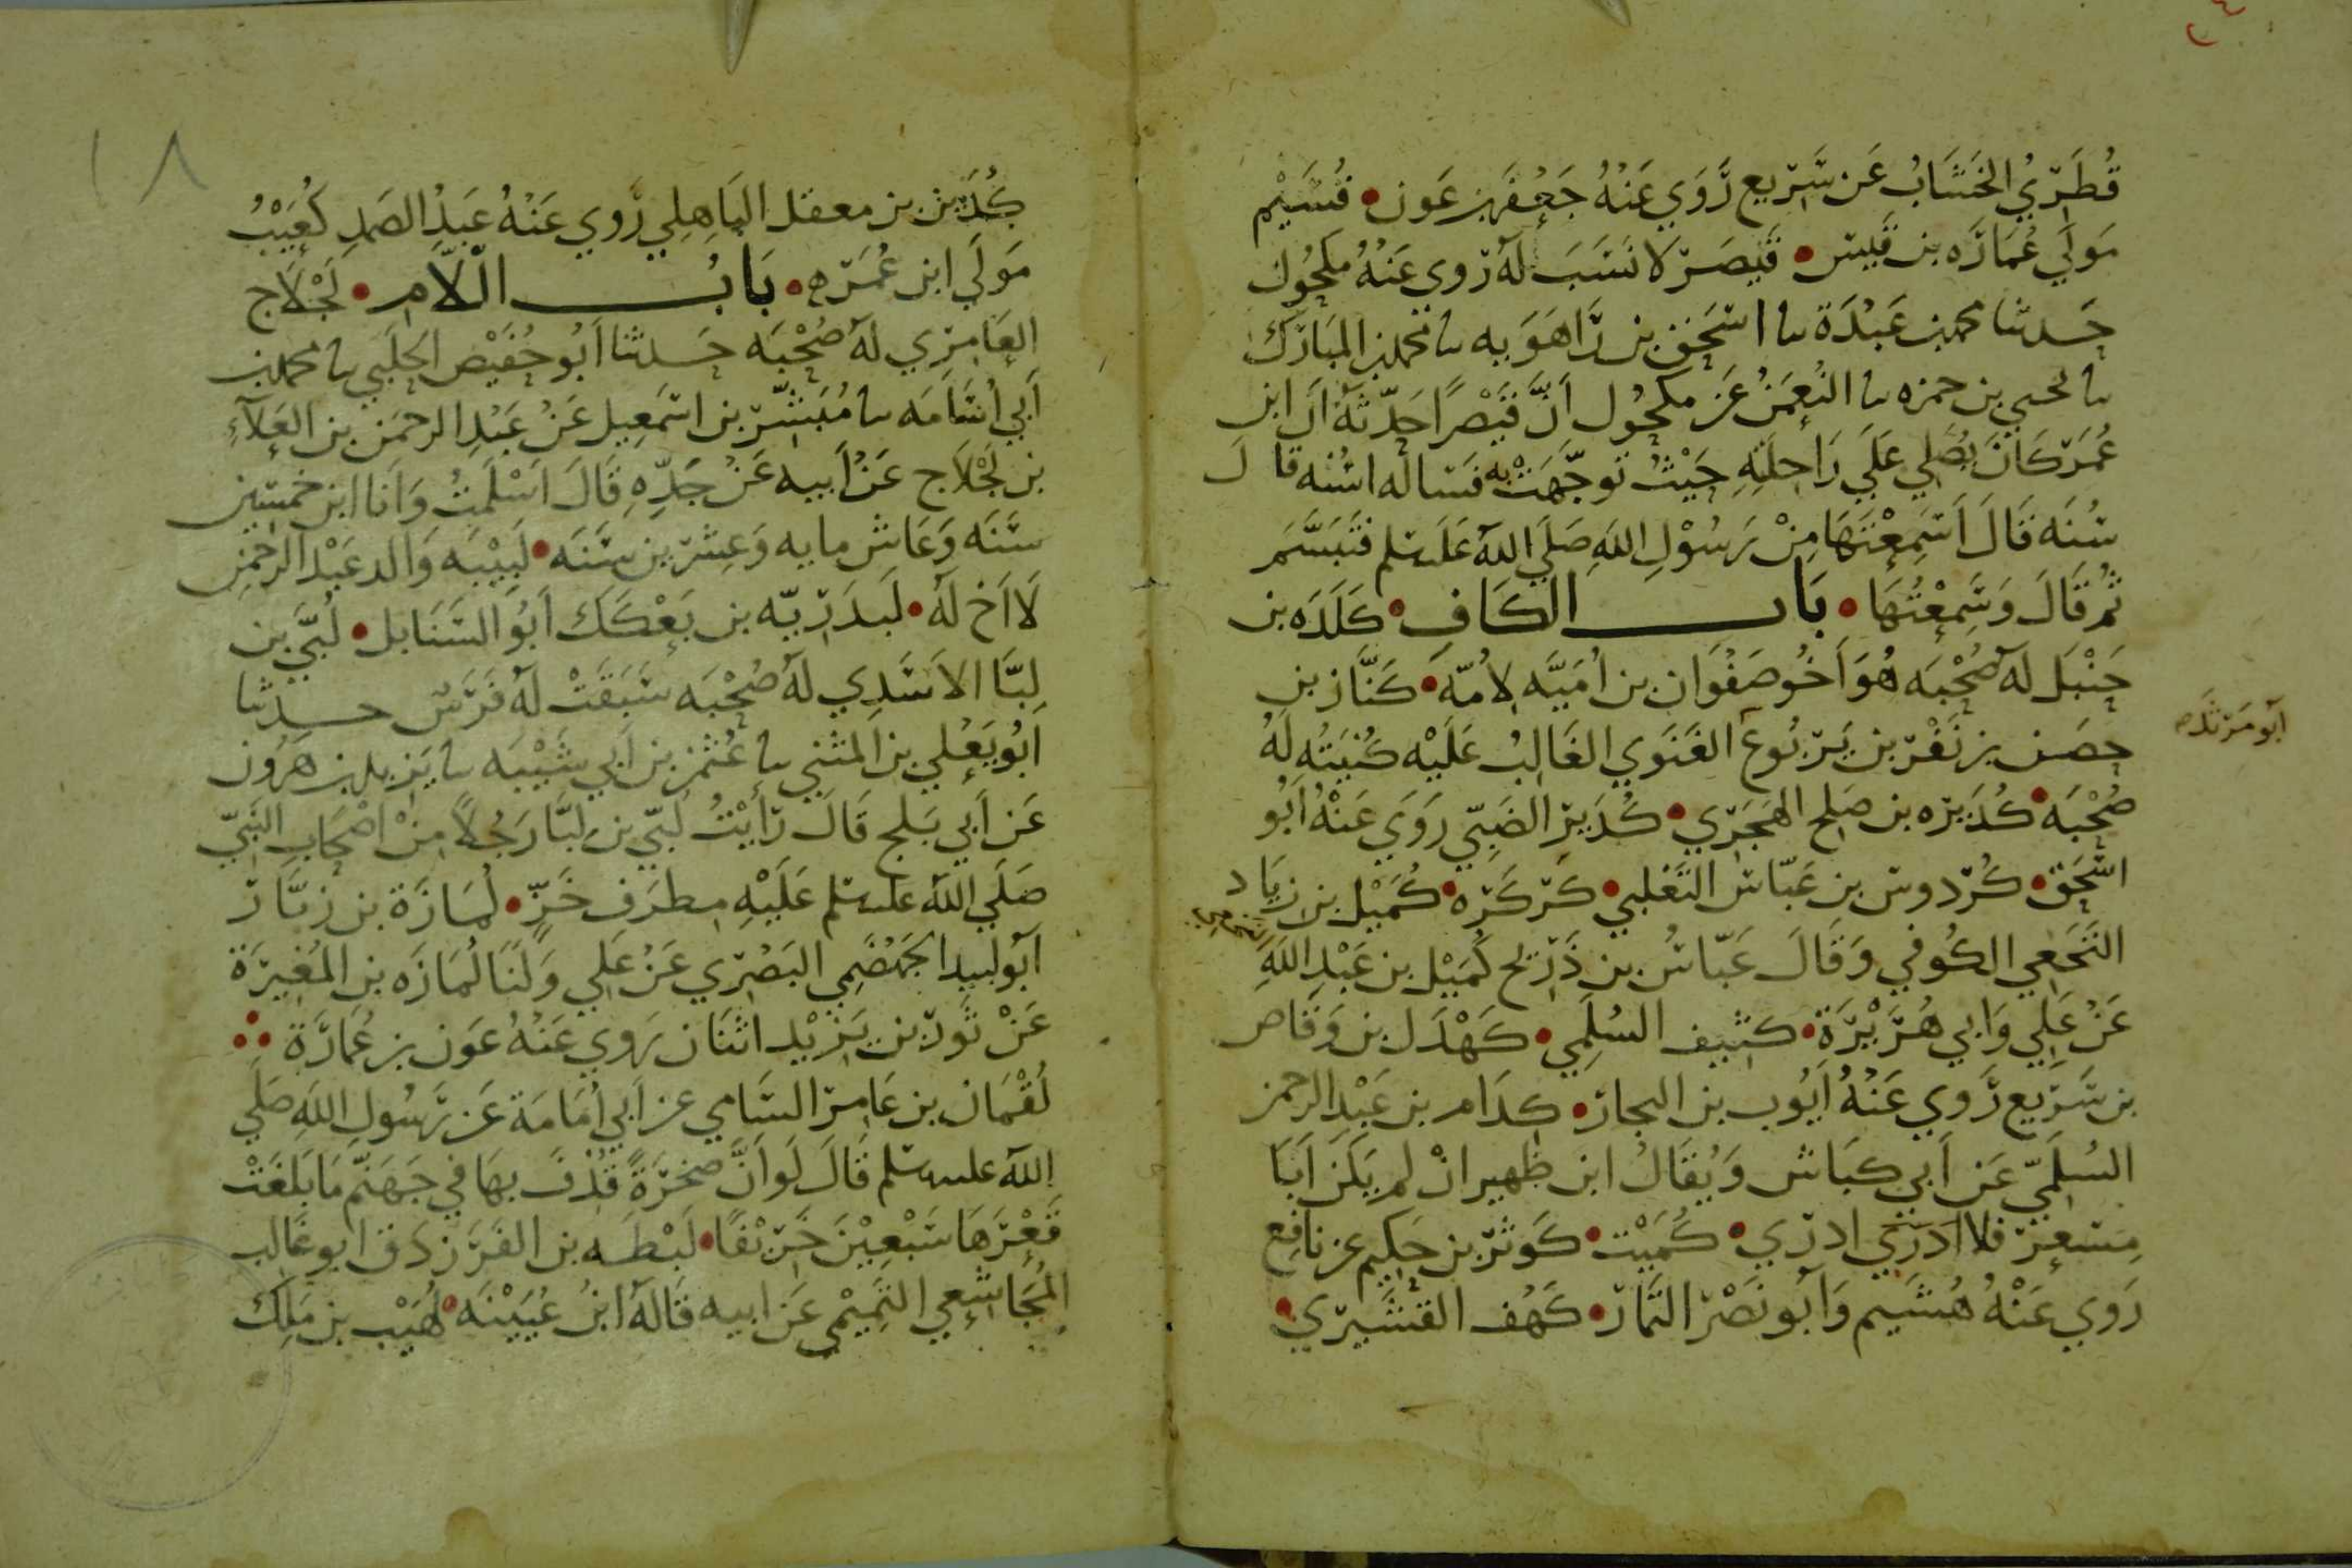 قُطَرِيُ الخَشَابُ عَن سَرِيع رَوَي عَنْهُ جَعْفَر بن عَون • قُسَيْم
مَولَي عُمَارَه بن قَيس • قَيْصَر لا نَسَبَ لهُ روى عَنْهُ مَكحُول
حَدثنا محمد بن عَبْدَة نا اسحَق بن رَاهَوَيه نا محمد بن المبَارَك
نا يحيى بن حمزه نا النُعمَنُ عَن مكحُول أنَّ قَيْصرًا حَدّثهُ ان ابن
عُمَر كانَ يُصَلي عَلَي رَاحِلَتِهِ حَيْثُ توجَّهَتْ به فسَاله اسُنه قال
سُنَه قَالَ اَسَمِعْتَهَا مِنْ رَسُوْلِ اللهِ صَلَي اللهُ علىسلم فَتَبَسَّمَ
ثم قَالَ وَسَمِعْتُهَا • بَاب الكَافِ • كَلَدَه بن
حَنْبَل لهُ صُحْبَه هُوَ اَخُو صَفْوَان بن اُمَيَّه لاُمّه • كَنَّاز بن
حِصَن بن نَفْر بن يَرْبُوع الغَنَوي الغَالِبُ عَلَيْه كنيَتُه لَهُ
أبو مَرثَد
صُحْبَه • كُدَيْره بن صَلح الهَجَرِي • كُدَير الضَبِّي رَوَي عَنْهُ اَبُو
اسْحَق • كُردوس بن عَبّاس التَغلبي • كَركَرَه • كُمَيْل بن زيَاد
النَخَعِي الكُوفي وَقَالَ عَبّاسُ بن ذَرِيح كُمَيْل بن عَبْدِ اللهِ
عَنْ عَلِي وَابي هُرَيْرَة • كَثِيف السُلمِي • كَهْدَل بن وَقَاص
بن سَرِيع رَوي عَنْهُ أيُوب بن النجار • كِدَام بن عَبْد الرحمن
السُلَمِيّ عَن اَبي كبَاش وَيُقَالُ ابن ظهير انْ لم يَكن اَبَا
مِسْعر فلا ادرَي ادري • كُمَيْت • كَوثَر بن حَكِيم عن نافِع
رَوي عَنْهُ هُشَيم وَأبُو نَصْر التمار • كَهْف القشَيري •
١٨
كُدَين بن معقل البَاهِلي رَوي عَنْهُ عَبدُ الصَمدِ كُعَيْبُ
مَولَي ابن عُمَره • بَابُ الّلاَم • لَجْلاَج
العَامِري لهُ صُحْبَه حَدثنا اَبُو حُفَيْص الحلَبي نا محمد بن
أبي اُسَامَه نا مُبَشّر بن اسمَعِيل عَنْ عَبْدِ الرحمَن بن العَلآءِ
بن لَجْلاَج عَنْ اَبيه عَنْ جَدِّهِ قَالَ اَسْلَمتُ وَانا ابن خمسين
سَنَه وَعَاش مايه وَعِشرين سَنَه • لَبِيْبَه وَالد عَبْد الرحمن
لا اَخ لهُ • لَبدَ رَبّه بن بَعْكَك اَبُو السَنَابل • لُبَيّ بن
لبَّا الاسَدِي لهُ صُحْبَه سَبَقَتْ لهُ فَرَس حدثنا
اَبُو يَعْلي بن المثَني نا عُثمن بن اَبي شَيْبَه نا يَزيد بن هَرُون
عَن اَبي بَلج قَالَ رَاَيْتُ لُبَيّ بن لبَّا رَجُلاً مِنْ اصْحَابِ النَبيّ
صَلَي اللهُ علىسلم عَلَيْهِ مِطرَف خَزّ • لُمَازَة بن زبَّار
أبُو لبيد الجَهضَمِي البَصْرِي عَنْ عَلِي وَلَنَا لُمَازَه بن المُغِيرَة
عَنْ ثَور بن يَزِيْد اثنَان رَوي عَنْهُ عَون بن عُمَارَة
لُقْمَان بن عَامِر الشامي عن اَبي اُمَامَة عَن رَسُولِ اللهِ صَلَي
اللهُ علىه سلم قَالَ لَو اَنَّ صَخرَةً قُذِفَ بهَا في جَهَنّم مَا بَلغَتْ
قَعْرَهَا سَبْعِيْنَ خَرِيْفًا • لَبْطَه بن الفَرَزدَق ابو غالب
المُجَاشعِي التَمِيْمي عَن ابيه قَالهُ ابنُ عُيَيْنَه • لُهَيْب بن مَلِك